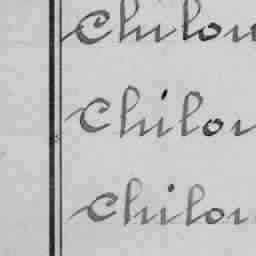 Chilou
Chilou
Chilou